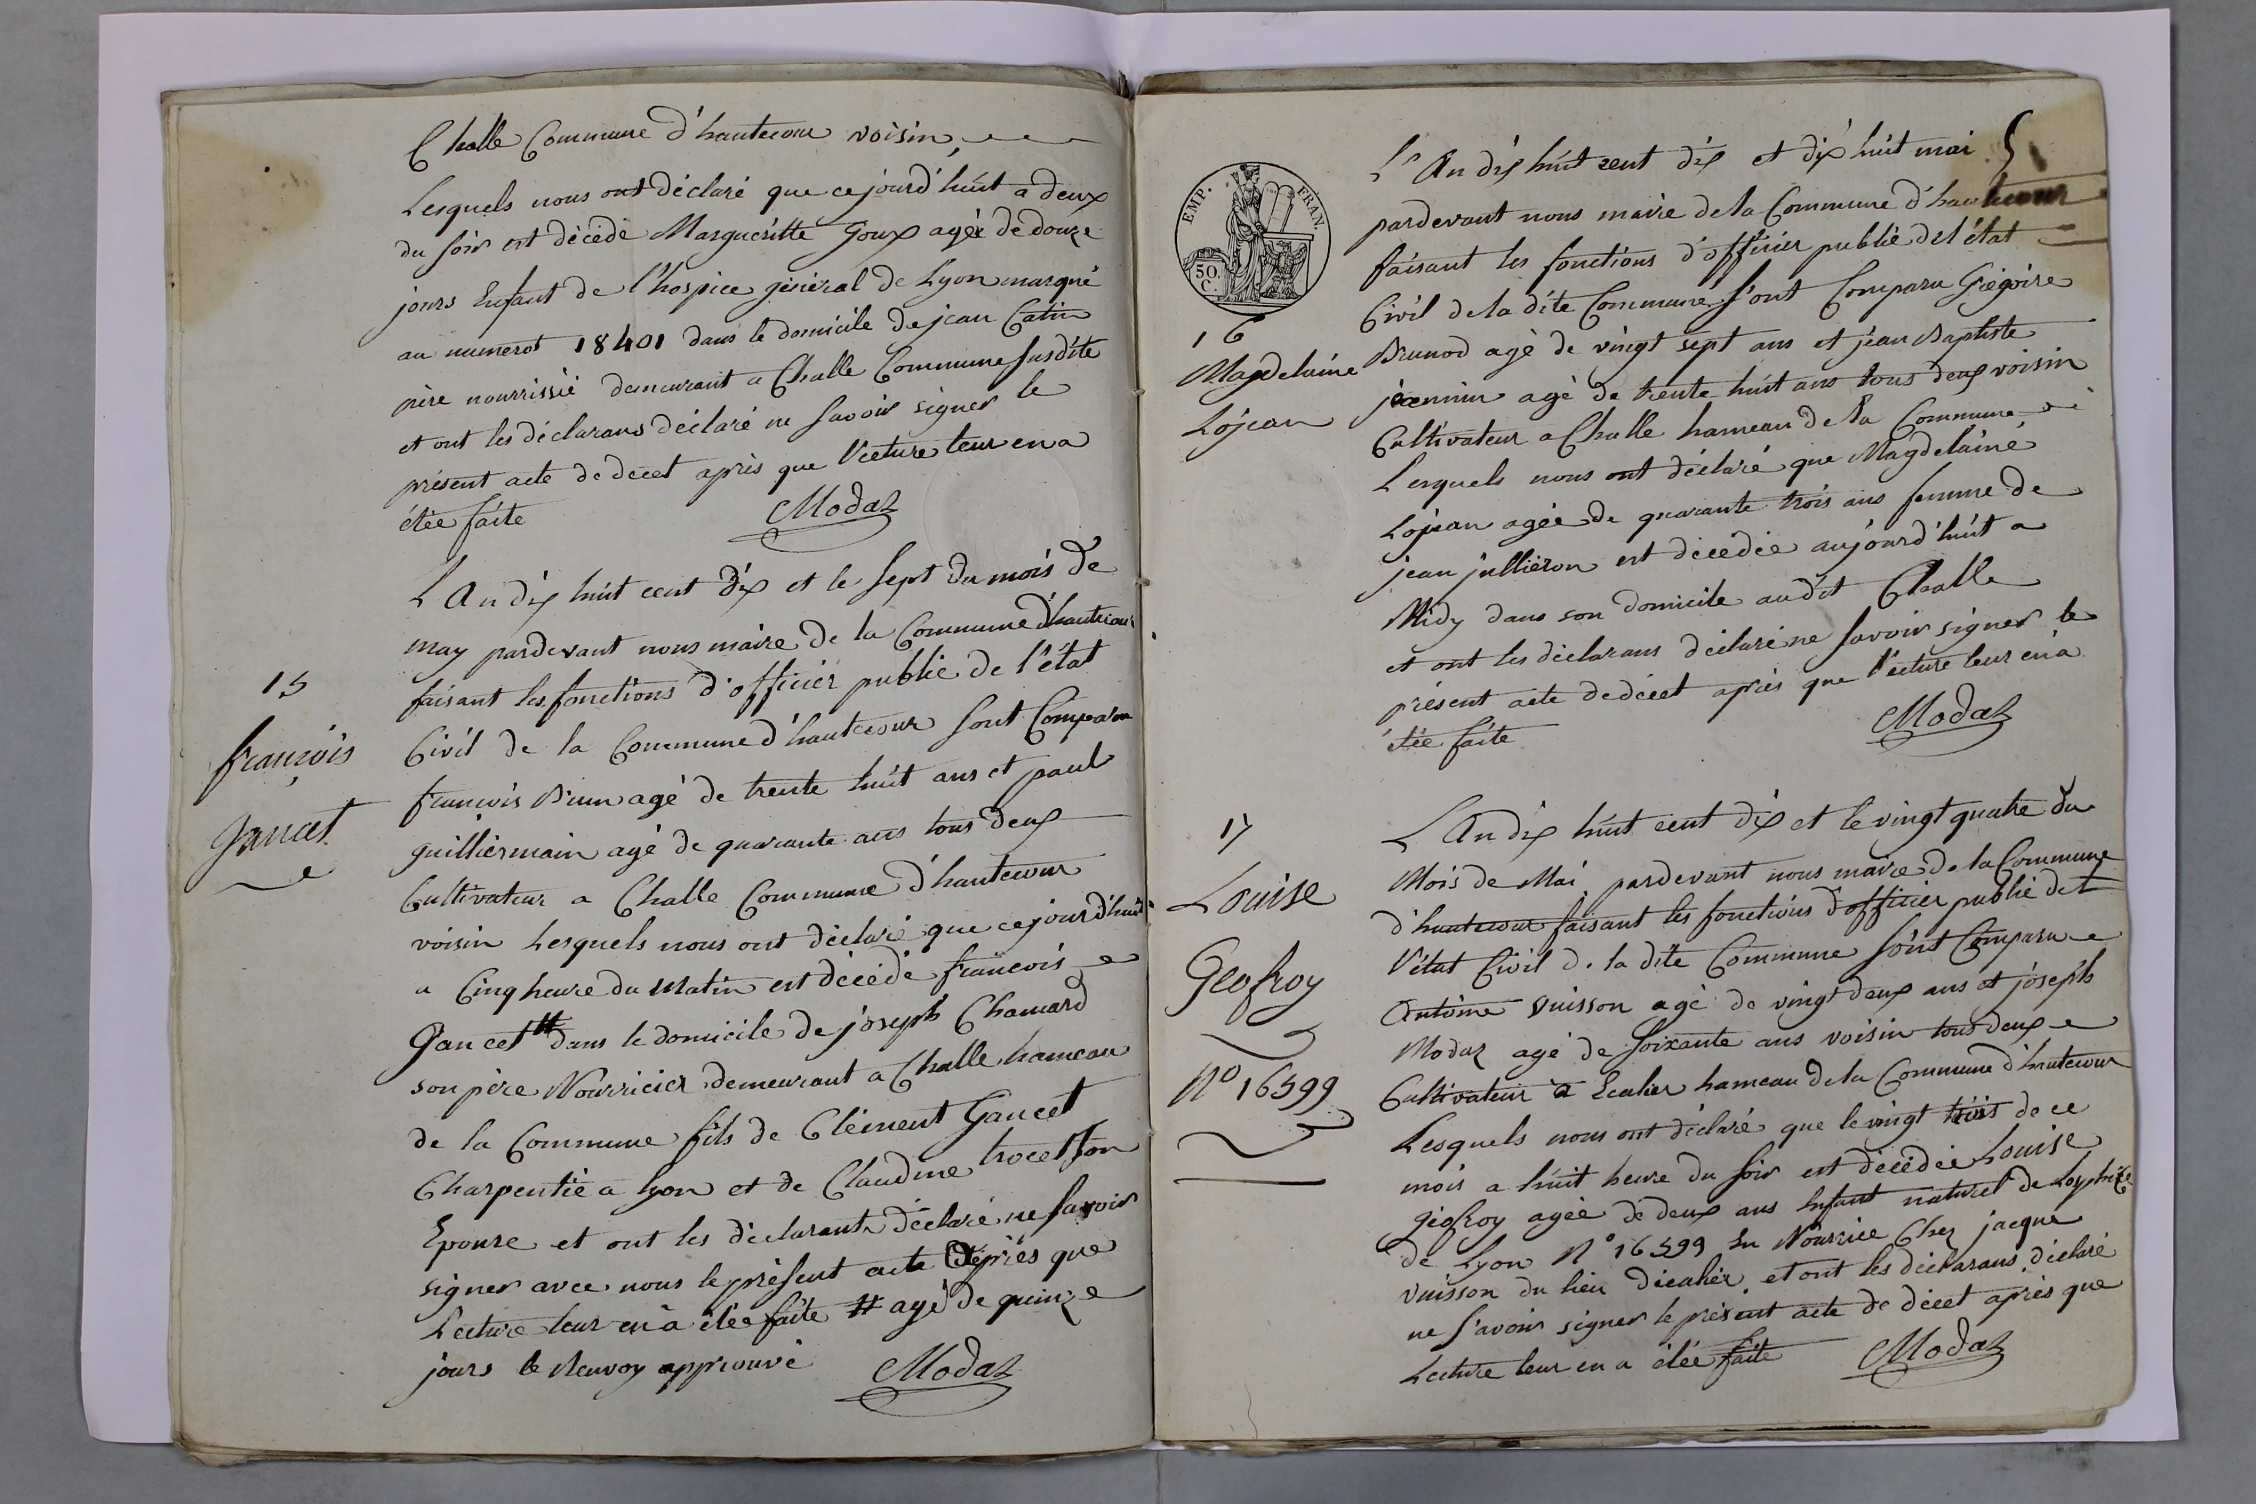 Challe Commune d'hautecour voisin
Lesquels nous ont déclaré que ce jourd'huit a deux
du soir est décédé Marguéritte Goux agée de douze
jours Enfant de l'hospice général de Lyon marqué
au numerot 18401 dans le domicile de jean Catin
père nourrissié demeurant a Challe Commune susdite
et ont les déclarans déclaré ne savoir signer le
présent acte de décet après que l'ecture leur en a
étée faite Modaz
15
françois
Gancet
L'An dix huit cent dix et le sept du mois de
may pardevant nous maire de la Commune d'hautecour
faisant les fonctions d'officier public de l'état
Civil de la Commune d'hautecour sont Comparu
françois Brun agé de trente huit ans et paul
guilliermain agé de quarante ans tous deux
Cultivateur a Challe Commune d'hautecour
voisin Lesquels nous ont déclaré que ce jourd'huit
a Cinq heure du Matin est décédé françois
Gancet # dans le domicile de joseph Chanard
son père Nourricier demeurant a Challe hameau
de la Commune fils de Clément Gancet
Charpentié a Lyon et de Claudine trocet son
Epouse et ont les déclarants déclaré ne savoir
signer avec nous le présent acte après que
Lecture leur en a étée faite # agé de quinze
jours le Renvoy approuvé Modaz
EMP. FRAN.
50.
C.
16
Magdelaine
Lojean
L'An dix huit cent dix et dix huit mai
pardevant nous maire de la Commune d'hautecour
faisant les fonctions d'officier public de l'état
Civil de la dite Commune sont Comparu Grégoire
Brunod agé de vingt sept ans et jean Baptiste
jeannin agé de trente huit ans tous deux voisin
Cultivateur a Challe hameau de la Commune
Lesquels nous ont déclaré que Magdelainé
Lojean agée de quarante trois ans femme de
jean jullieron est décédée aujourd'huit a
Midy dans son domicile audit Challe
et ont les déclarans déclaré ne savoir signer le
présent acte de décet après que l'ecture leur en a
étée faite Modaz
17
Louise
Geofroy
N° 16599
L'An dix huit cent dix et le vingt quatre du
Mois de Mai pardevant nous maire de la Commune
d'hautecour faisant les fonctions d'officier public de
l'état Civil de la dite Commune sont Comparu
Antoine Vuisson agé de vingt deux ans et joseph
Modaz agé de soixante ans voisin tous deux
Cultivateur a Ecalier hameau de la Commune d'hautecour
Lesquels nous ont déclaré que le vingt trois de ce
mois a huit heure du soir est décédée Louise
géofroy agée de deux ans Enfant naturel de
de Lyon N° 16599 En Nourrice Chez jacque
vuisson du lieu d'écalier et ont les déclarans déclaré
ne savoir signer le présent acte de décet après que
Lecture leur en a étée faite Modaz